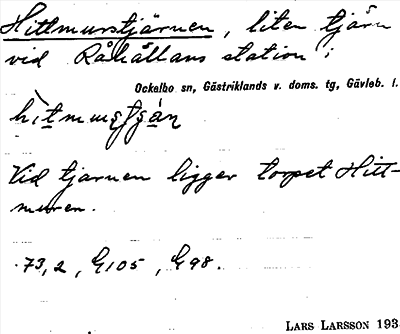 Hittmurstjärnen, liten tjärn
vid Råhällans station i
Ockelbo sn, Gästriklands v. doms. tg, Gävleb. l.
Vid tjärnen ligger torpet Hitt-
muren.
73,2, G105, G98.
LARS LARSSON 193